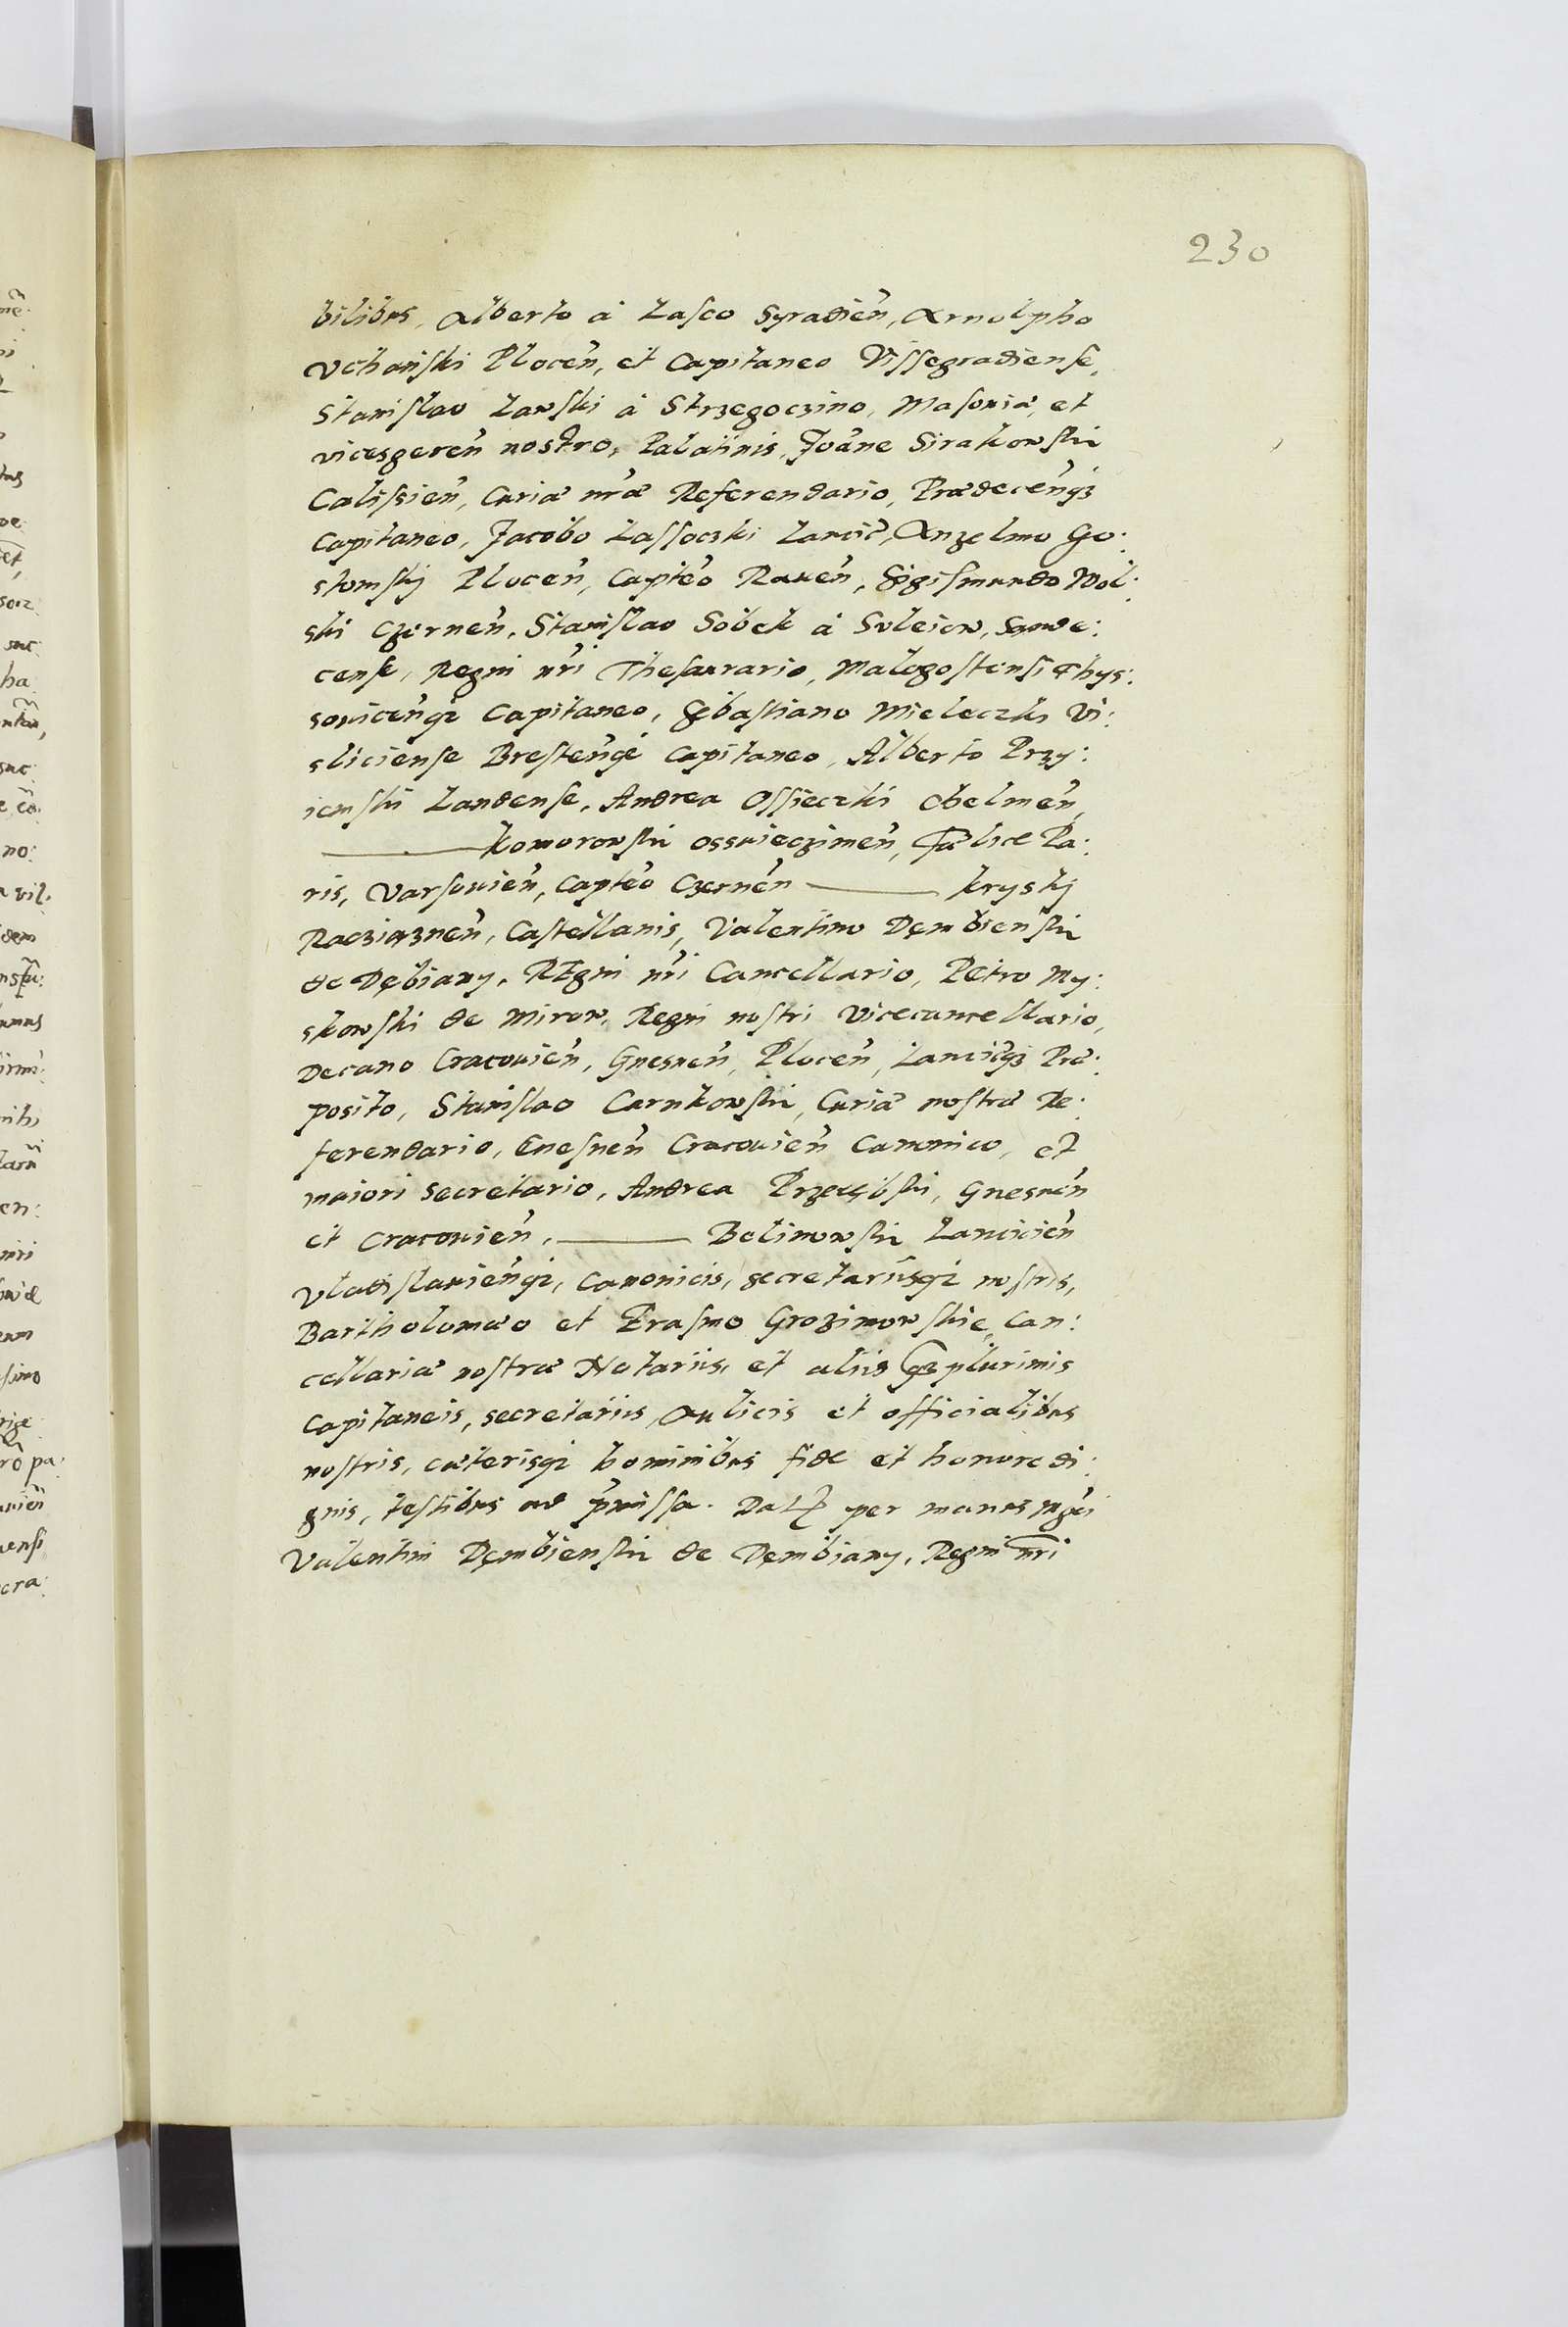 230
bilibus, Alberto à Lasco Syradień, Arnolpho
Uchański Ploceń, et Capitaneo Vissegradiense,
Stanislao Lawski à Strzegoczino, Masoviæ, et
vicesgereń nostro, Palatinis, Joāne Sirakowski
Calissień, Curiæ nr̃æ Referendario, Prædeceńqȝ
Capitaneo, Jacobo Lassoczki Lancic̃, Anzelmo Go:
stomskij Ploceń, Capteo Raveń, Sigismundo Wol:
ski Czerneń, Stanislao Sobek à Suleiow, Sande:
cense, Regni nr̃i Thesaurario, Malogostensi Thys:
soviceńqȝ Capitaneo, Sebastiano Mieleczki Vi:
sliciense Bresteńqȝ Capitaneo, Alberto Przy:
iemski Landense, Andrea Ossieczki Chelmeń,
——— Komorowski Ossuieczimeń, Fælice Pa:
ris, Varsovień, Capteo Czerneń ——— Kryskij
Racziązneń, Castellanis, Valentino Dęmbienski
de Dębiany, REgni nr̃i Cancellario, Petro My:
skowski de Mirow, Regni nostri Vicecancellario,
Decano Cracovień, Gnesneń, Ploceń, Lancicqȝ Præ:
posito, Stanislao Carnkowski, Curiæ nostræ Re:
ferendario, Gnesneń Cracovień Canonico, et
maiori Secretario, Andrea Przerębski, Gnesneń
et Cracovień, ——— Bolimowski Lancicień
Vladislavieńqȝ, Canonicis, Secretariisqȝ nostris,
Bartholomæo et Erasmo Grozimowskie, Can:
cellariæ nostræ Notariis, et aliis qȝ plurimis
Capitaneis, secretariis Aulicis et officialibus
nostris, cæterisqȝ hominibus fide et honore di:
gnis, testibus ad p̃missa. Dat per manus mgci
Valentini Dęmbienski de Dęmbiany, Regni nr̃i